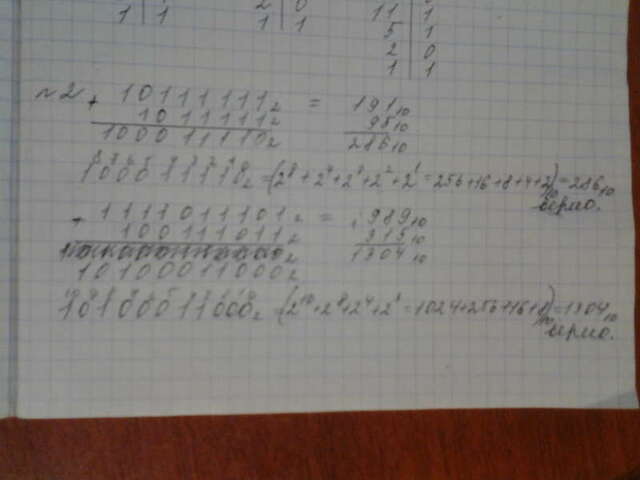 1 | 1
2 | 0
1 | 1
11 | 1
5 | 1
2 | 0
1 | 1
№2 + 10111111₂ = 191₁₀
1011111₂ 95₁₀
100011110₂ 286₁₀
100011110₂ = (2⁸+2⁴+2³+2²+2¹=256+16+8+4+2)₁₀=286₁₀
верно.
+ 1111011101₂ = 989₁₀
100111011₂ 315₁₀
1304₁₀
10100011000₂
10100011000₂ = (2¹⁰+2⁸+2⁴+2³=1024+256+16+8)₁₀=1304₁₀
верно.